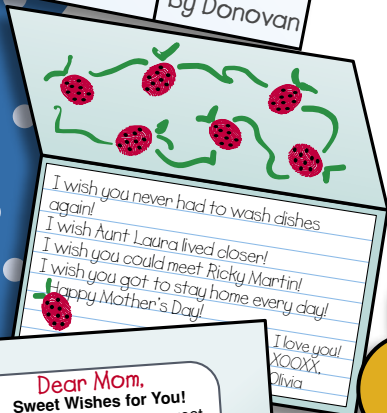 by Donovan
I wish you never had to wash dishes
again!
I wish Aunt Laura lived closer!
I wish you could meet Ricky Martin!
I wish you got to stay home every day!
Happy Mother's Day!
I love you!
XOOXX,
Olivia
Dear Mom,
Sweet Wishes for You!